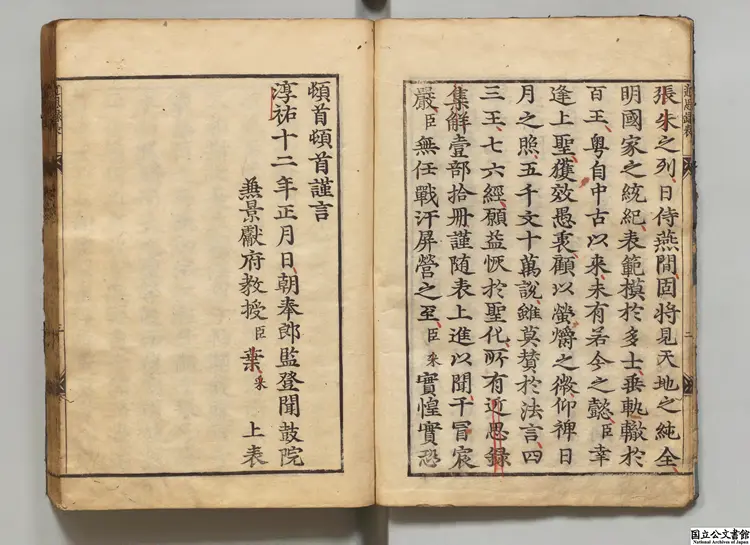 張朱之列日侍燕閒固將見天地之純全
明國家之統紀表範模於多士垂軌轍於
百王粵自中古以來未有若今之懿臣幸
逢上聖獲效愚衷顧以螢爝之微仰裨日
月之照五千文十萬說雖莫贊於法言四
三王七六經願益恢於聖化所有近思錄
集解壹部拾册謹隨表上進以聞干冒宸
嚴臣無任戰汗屏營之至臣采實惶實恐
頓首頓首謹言
淳祐十二年正月日朝奉郎監登聞鼓院
兼景獻府教授臣葉采 上表
国立公文書館
National Archives of Japan